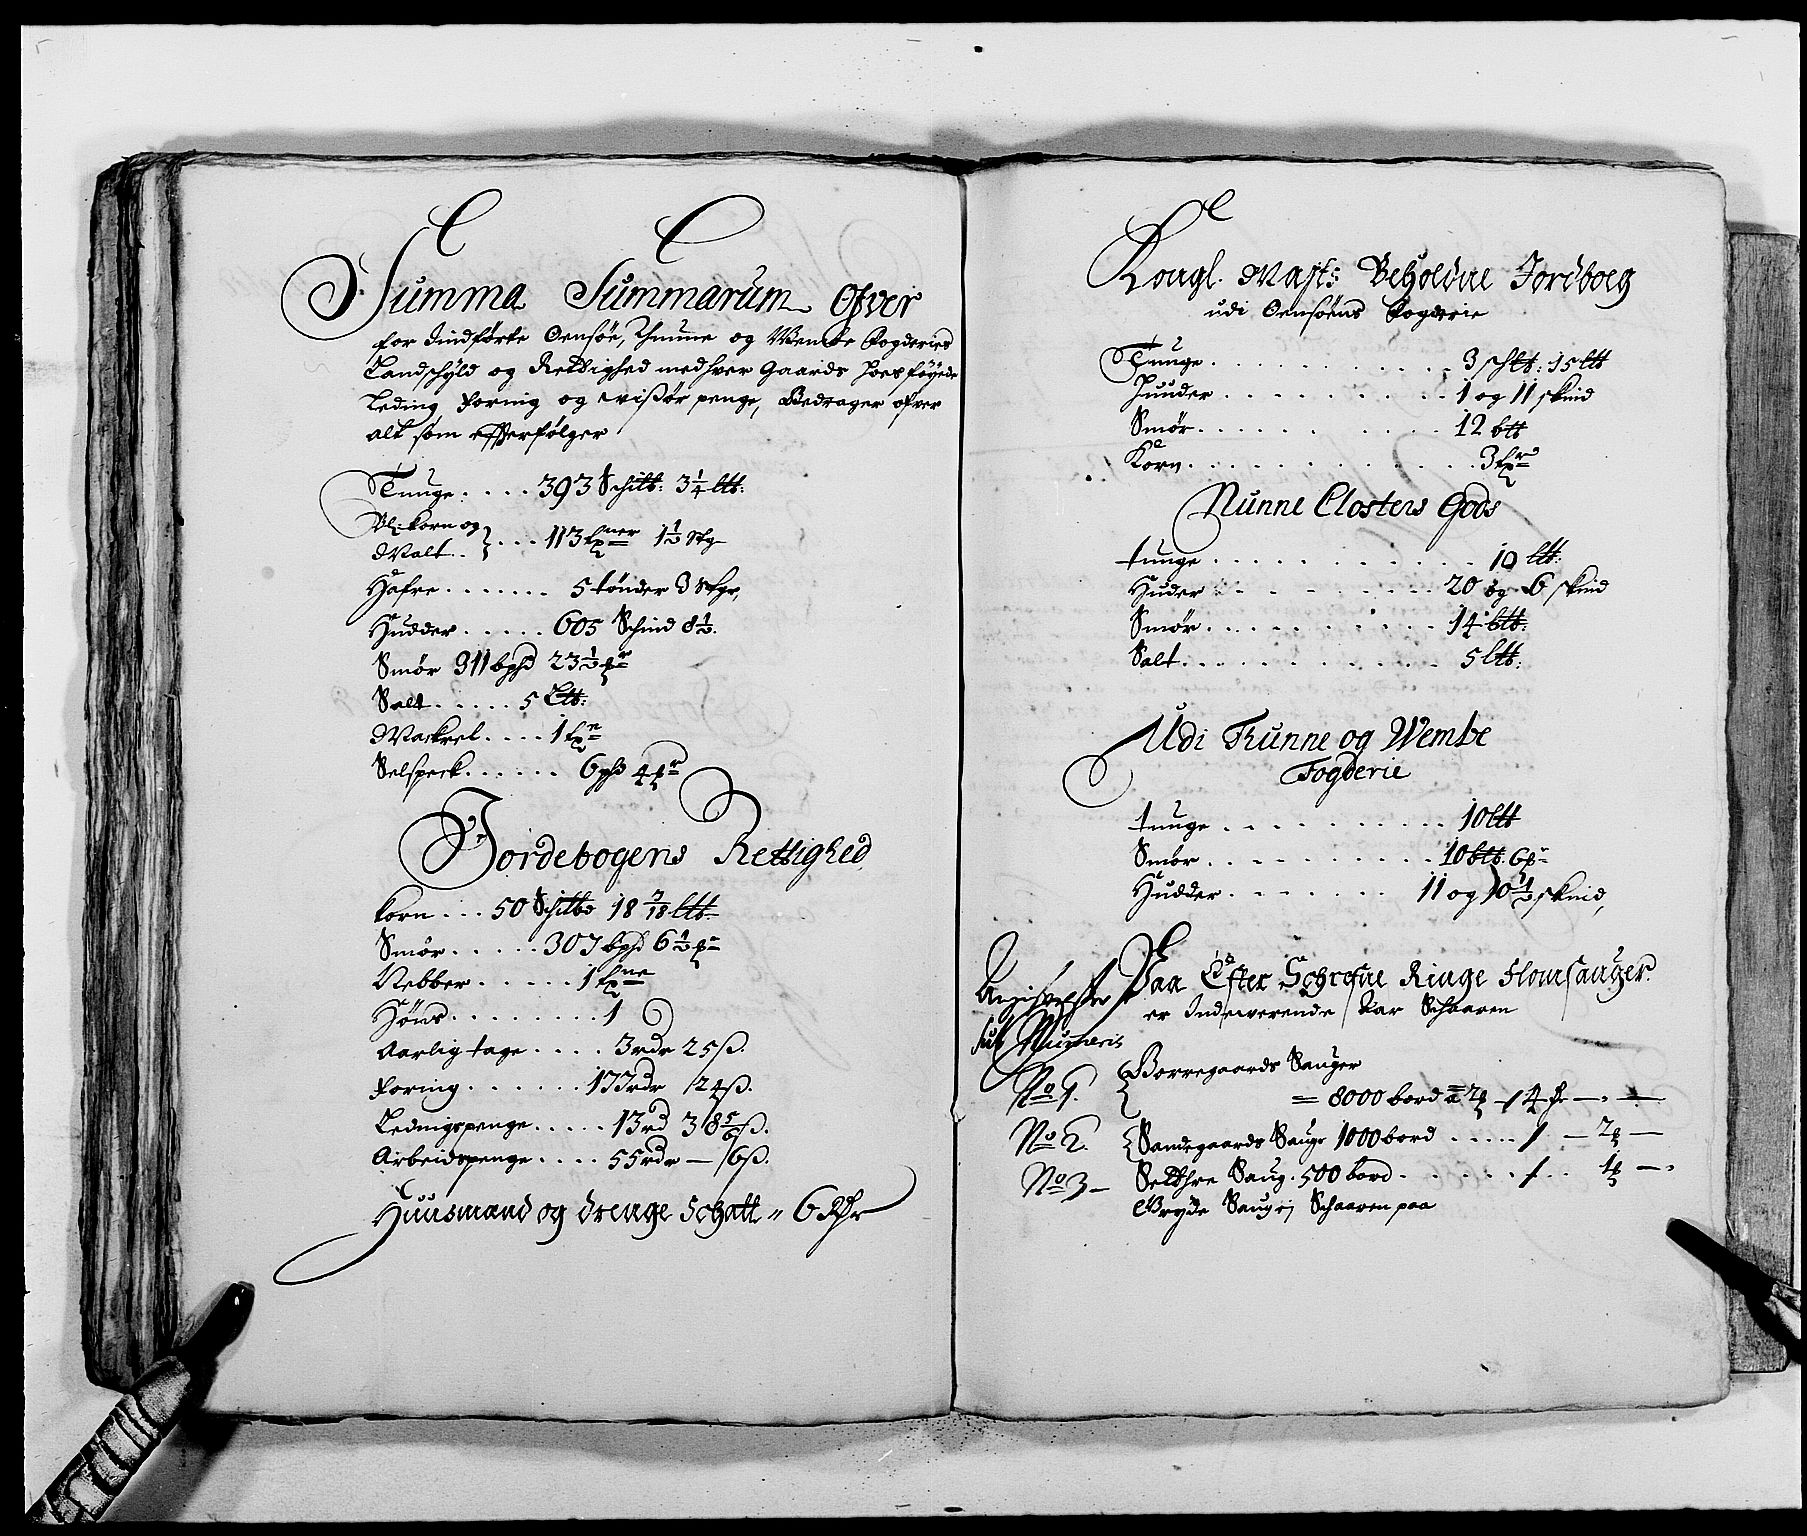 Summa Summarum Ofver
for Indførte Oensøe, Thunne og Wembe Fogderies
Landschyld og Rettighed med hver Gaards hoesføyede
Leding Foring og wisør penge, Bedrager ofver
alt som effterfølger
Tunge .... 393 Schltt: 3¼ ltt:
Bl: korn og
Malt .. } ... 113 tønner 1½ Stg
Hafre ....... 5 tønder 3 Stgr,
Hudder ..... 605 Schind 8½.
Smør 311 bphd 23½
Salt ..... 5 Ltt:
Mackrel .... 1
Selspeck ...... 6 phd 4
Jordebogens Rettighed
korn ... 50 Schltt 18 7/18 ltt
Smør ..... 307 bphd 6½
Nebber ..... 1
Høns ........ 1
Aarlig tage .... 3 rdr 25 ß.
Foring ...... 177 rdr 24 ß.
Ledingspenge ..... 13 rd 38 5/6 ß.
Arbeidspenge .... 55 rdr — 16 ß.
Huusmand og drenge Schatt " 6 Rdr
Kongl. Mayts: Beholdne Jordboeg
udi Oensøens Fogderie
Tunge ............ 3 schltt: 15 ltt
Huuder .......... 1 og 11 skind
Smør .......... 12 btt
Korn ............ 3
Nunne Closters Gods
tunge ............ 10 ltt:
Huder ......... 20 og 6 skind
Smør .......... 14 btt:
Salt ........... 5 ltt:
Udi Thunne og Wembe
Fogderie
tunge .......... 10 ltt
Smør .......... 10 btt 6
Hudder ....... 11 og 10½ skind,
Paa Efter Schrefne Ringe Flomsauger
er Indeverende Aar Schaaren
sub Numeris
No 1. { Borregaards Sauger
= 8000 bord
No 2. { Sandegaards Sauge 1000 bord ..... 1 — 2 —
No 3 — Selthre Saug. 500 bord ....... 1 .. 1 —
Bryde Saugej Schaaren paa